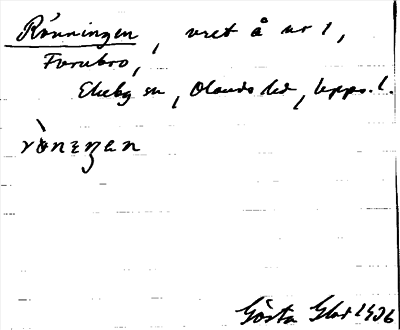 Rönningen, vret å nr 1,
Forubro,
Ekeby sn, Olands hd, Upps. l.
rònenzen
Gösta Glad 1936